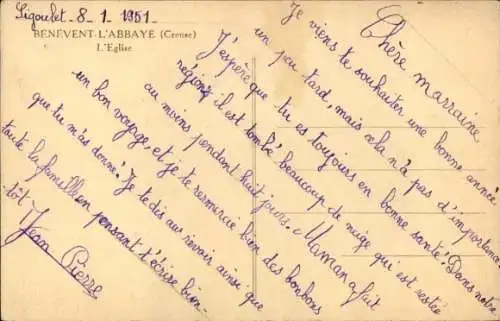 Sigoulet - 8 - 1 - 1951 -
BÉNÉVENT-L'ABBAYE (Creuse)
L'Eglise
Chère marraine
Je viens te souhaiter une bonne année
un peu tard, mais cela n'a pas d'importance
J'espère que tu es toujours en bonne santé! Dans notre
région, il est tombé beaucoup de neige qui est restée
au moins pendant huit jours. Maman a fait
un bon voyage, et je te remercie bien des bonbons
que tu m'as donné! Je te dis au revoir ainsi que
toute la famille en pensant t'écrire bien-
tôt
Jean Pierre